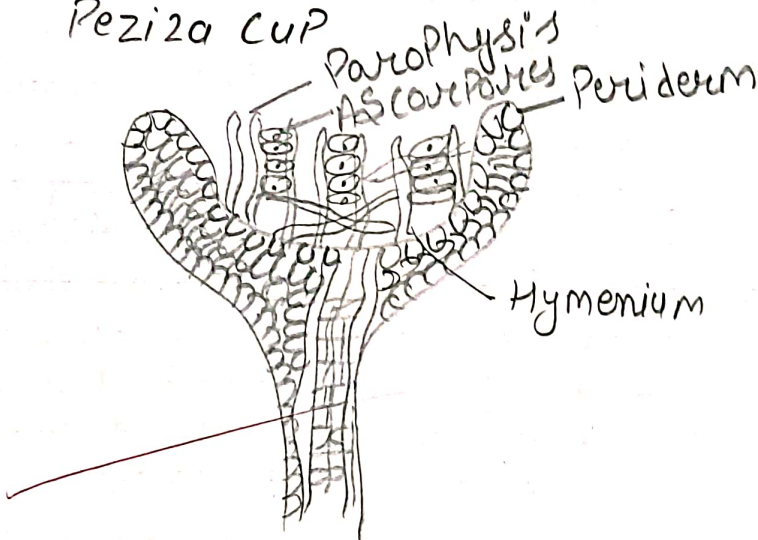 Peziza cup
Parophysis
Ascorpores
Periderm
Hymenium